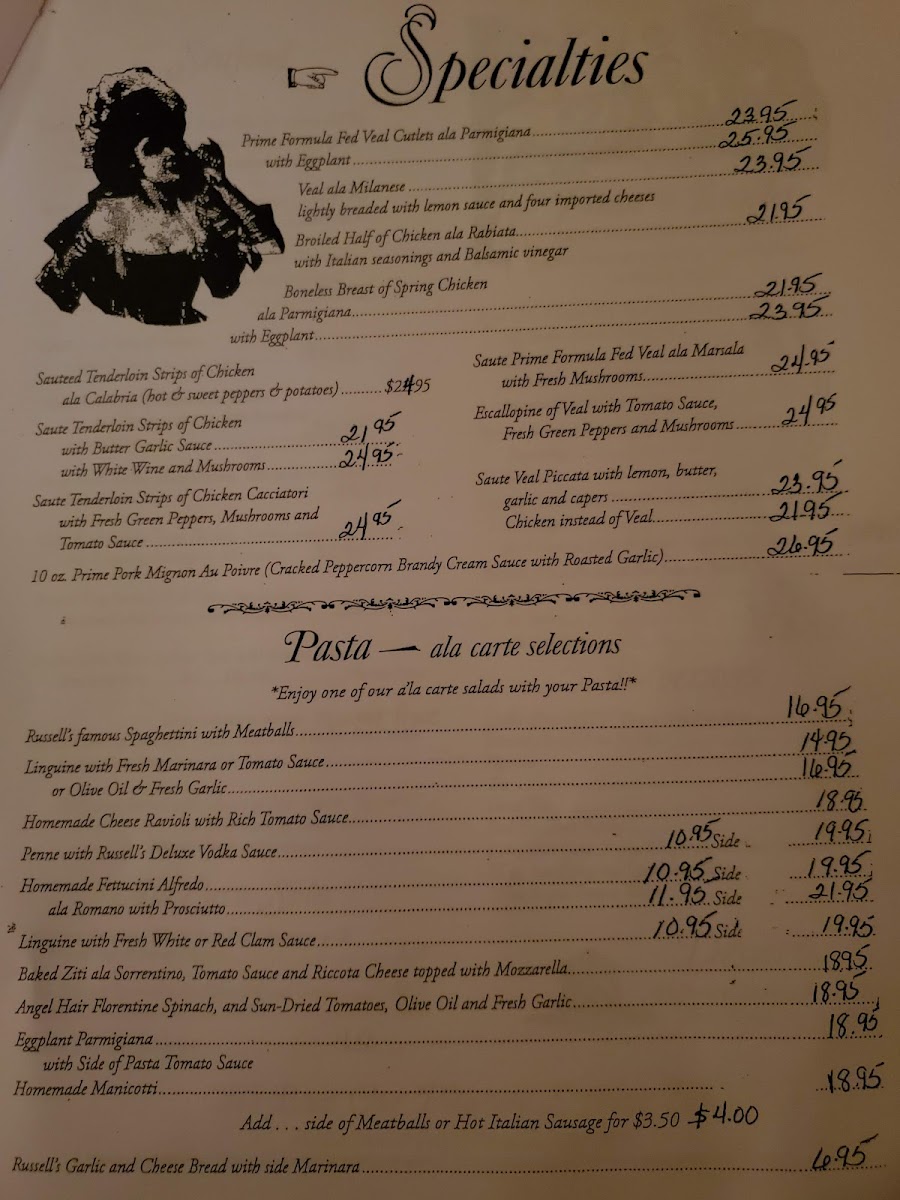 Specialties
Prime Formula Fed Veal Cutlets ala Parmigiana 23.95
with Eggplant 25.95
Veal ala Milanese 23.95
lightly breaded with lemon sauce and four imported cheeses
Broiled Half of Chicken ala Rabiata 21.95
with Italian seasonings and Balsamic vinegar
Boneless Breast of Spring Chicken
ala Parmigiana 21.95
with Eggplant 23.95
Sauteed Tenderloin Strips of Chicken
ala Calabria (hot & sweet peppers & potatoes) $24.95
Saute Tenderloin Strips of Chicken
with Butter Garlic Sauce 21.95
with White Wine and Mushrooms 24.95
Saute Tenderloin Strips of Chicken Cacciatori
with Fresh Green Peppers, Mushrooms and
Tomato Sauce 24.95
Saute Prime Formula Fed Veal ala Marsala
with Fresh Mushrooms 24.95
Escallopine of Veal with Tomato Sauce,
Fresh Green Peppers and Mushrooms 24.95
Saute Veal Piccata with lemon, butter,
garlic and capers 23.95
Chicken instead of Veal 21.95
10 oz. Prime Pork Mignon Au Poivre (Cracked Peppercorn Brandy Cream Sauce with Roasted Garlic) 26.95
Pasta — ala carte selections
*Enjoy one of our a'la carte salads with your Pasta!!*
Russell's famous Spaghettini with Meatballs 16.95
Linguine with Fresh Marinara or Tomato Sauce 14.95
or Olive Oil & Fresh Garlic 16.95
Homemade Cheese Ravioli with Rich Tomato Sauce 18.95
Penne with Russell's Deluxe Vodka Sauce 10.95 Side 19.95
Homemade Fettucini Alfredo 10.95 Side 19.95
ala Romano with Prosciutto 11.95 Side 21.95
Linguine with Fresh White or Red Clam Sauce 10.95 Side 19.95
Baked Ziti ala Sorrentino, Tomato Sauce and Riccota Cheese topped with Mozzarella 18.95
Angel Hair Florentine Spinach, and Sun-Dried Tomatoes, Olive Oil and Fresh Garlic 18.95
Eggplant Parmigiana 18.95
with Side of Pasta Tomato Sauce
Homemade Manicotti 18.95
Add . . . side of Meatballs or Hot Italian Sausage for $3.50 $4.00
Russell's Garlic and Cheese Bread with side Marinara 6.95